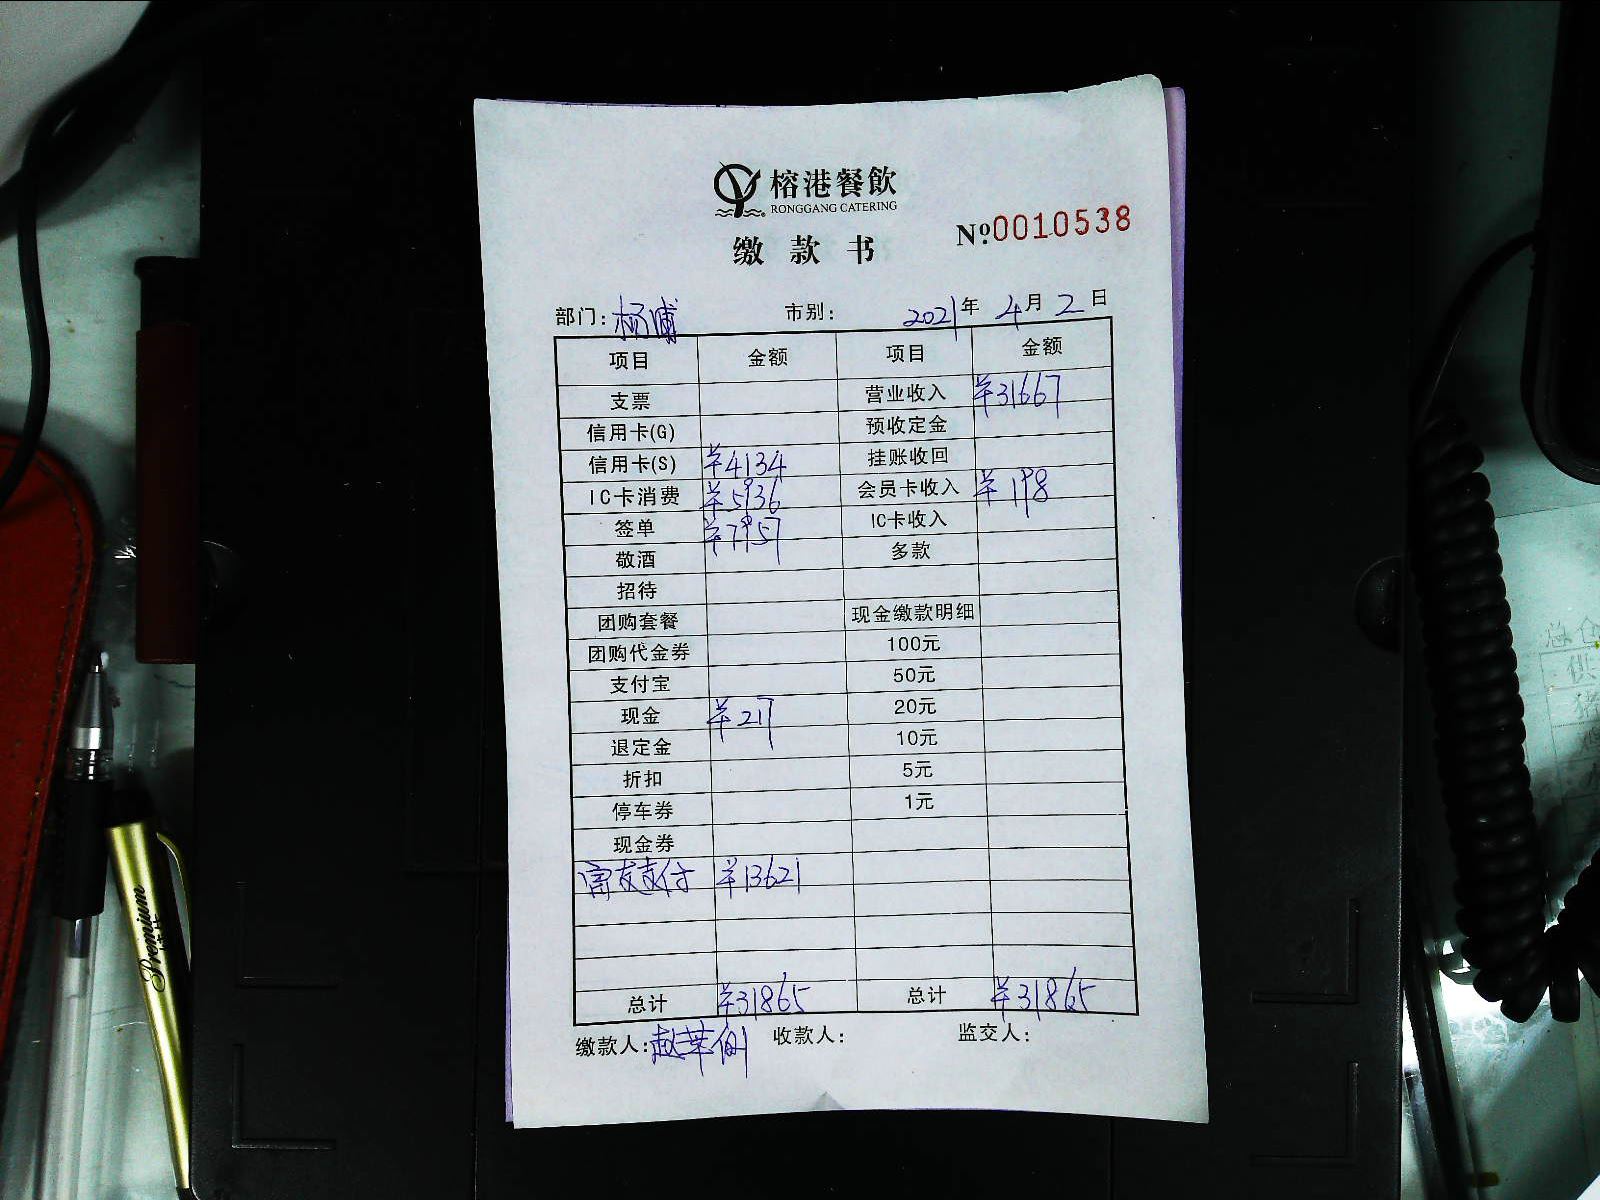 榕港餐飲
RONGGANG CATERING
缴款书 Nº.0010538
部门: 杨浦 市别: 2021年4月2日
项目 金额 项目 金额
支票 营业收入 ¥31667
信用卡(G) 预收定金
信用卡(S) ¥4134 挂账收回
IC卡消费 ¥5936 会员卡收入 ¥198
签单 ¥7957 IC卡收入
敬酒 多款
招待
团购套餐 现金缴款明细
团购代金券 100元
支付宝 50元
现金 ¥217 20元
退定金 10元
折扣 5元
停车券 1元
现金券
富友支付 ¥13621
总计 ¥31865 总计 ¥31865
缴款人: 收款人: 监交人:
Premium